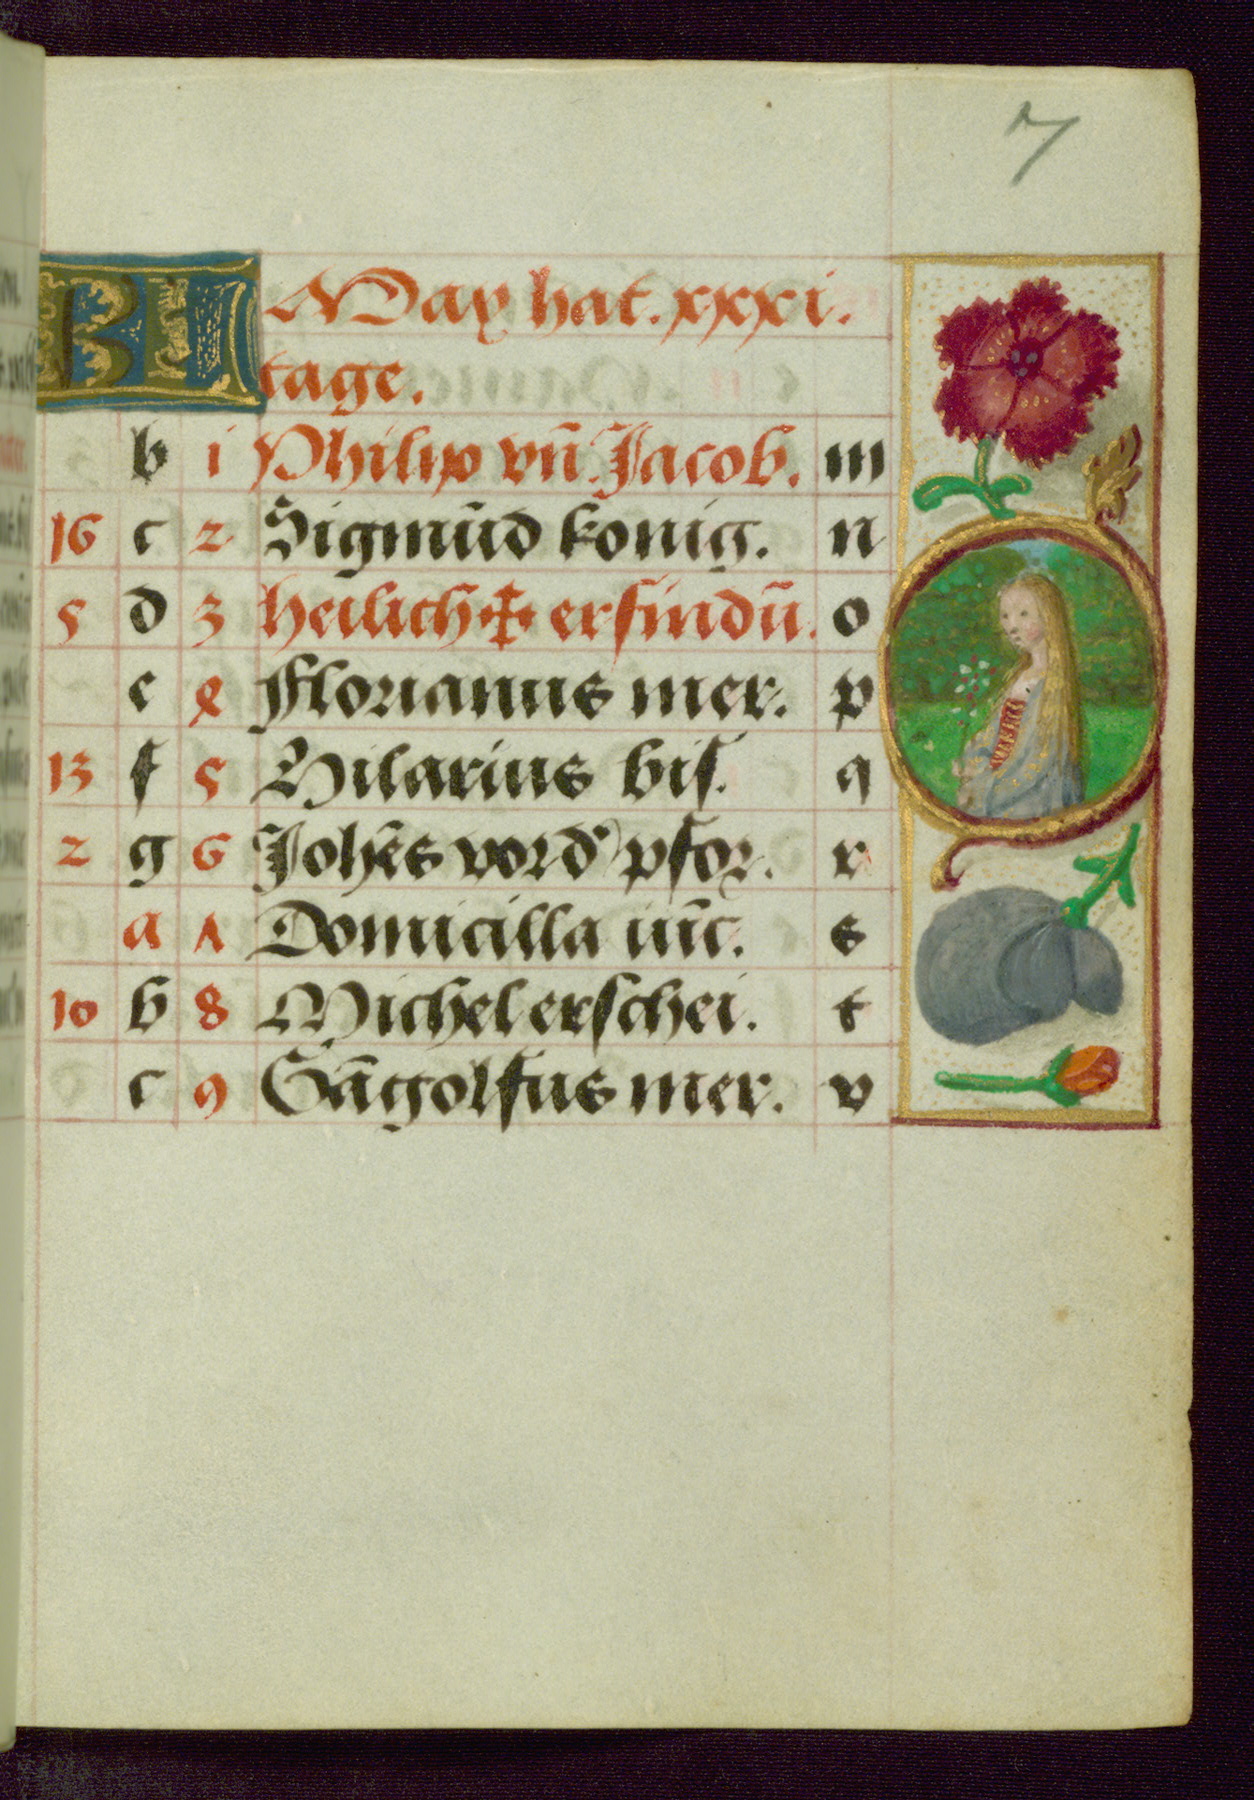 7
KL May hat. xxxi.
tage.
b i Philip vn̄ Jacob. m
16 c 2 Sigmūd konig. n
5 d 3 heilich ✠ erfindū. o
e 4 Florianus mer. p
13 f 5 Hilarius bis. q
2 g 6 Johēs vor d' pfor. r
a 7 Domicilla iūc. s
10 b 8 Michel erschei. t
c 9 Gāgolfus mer. v